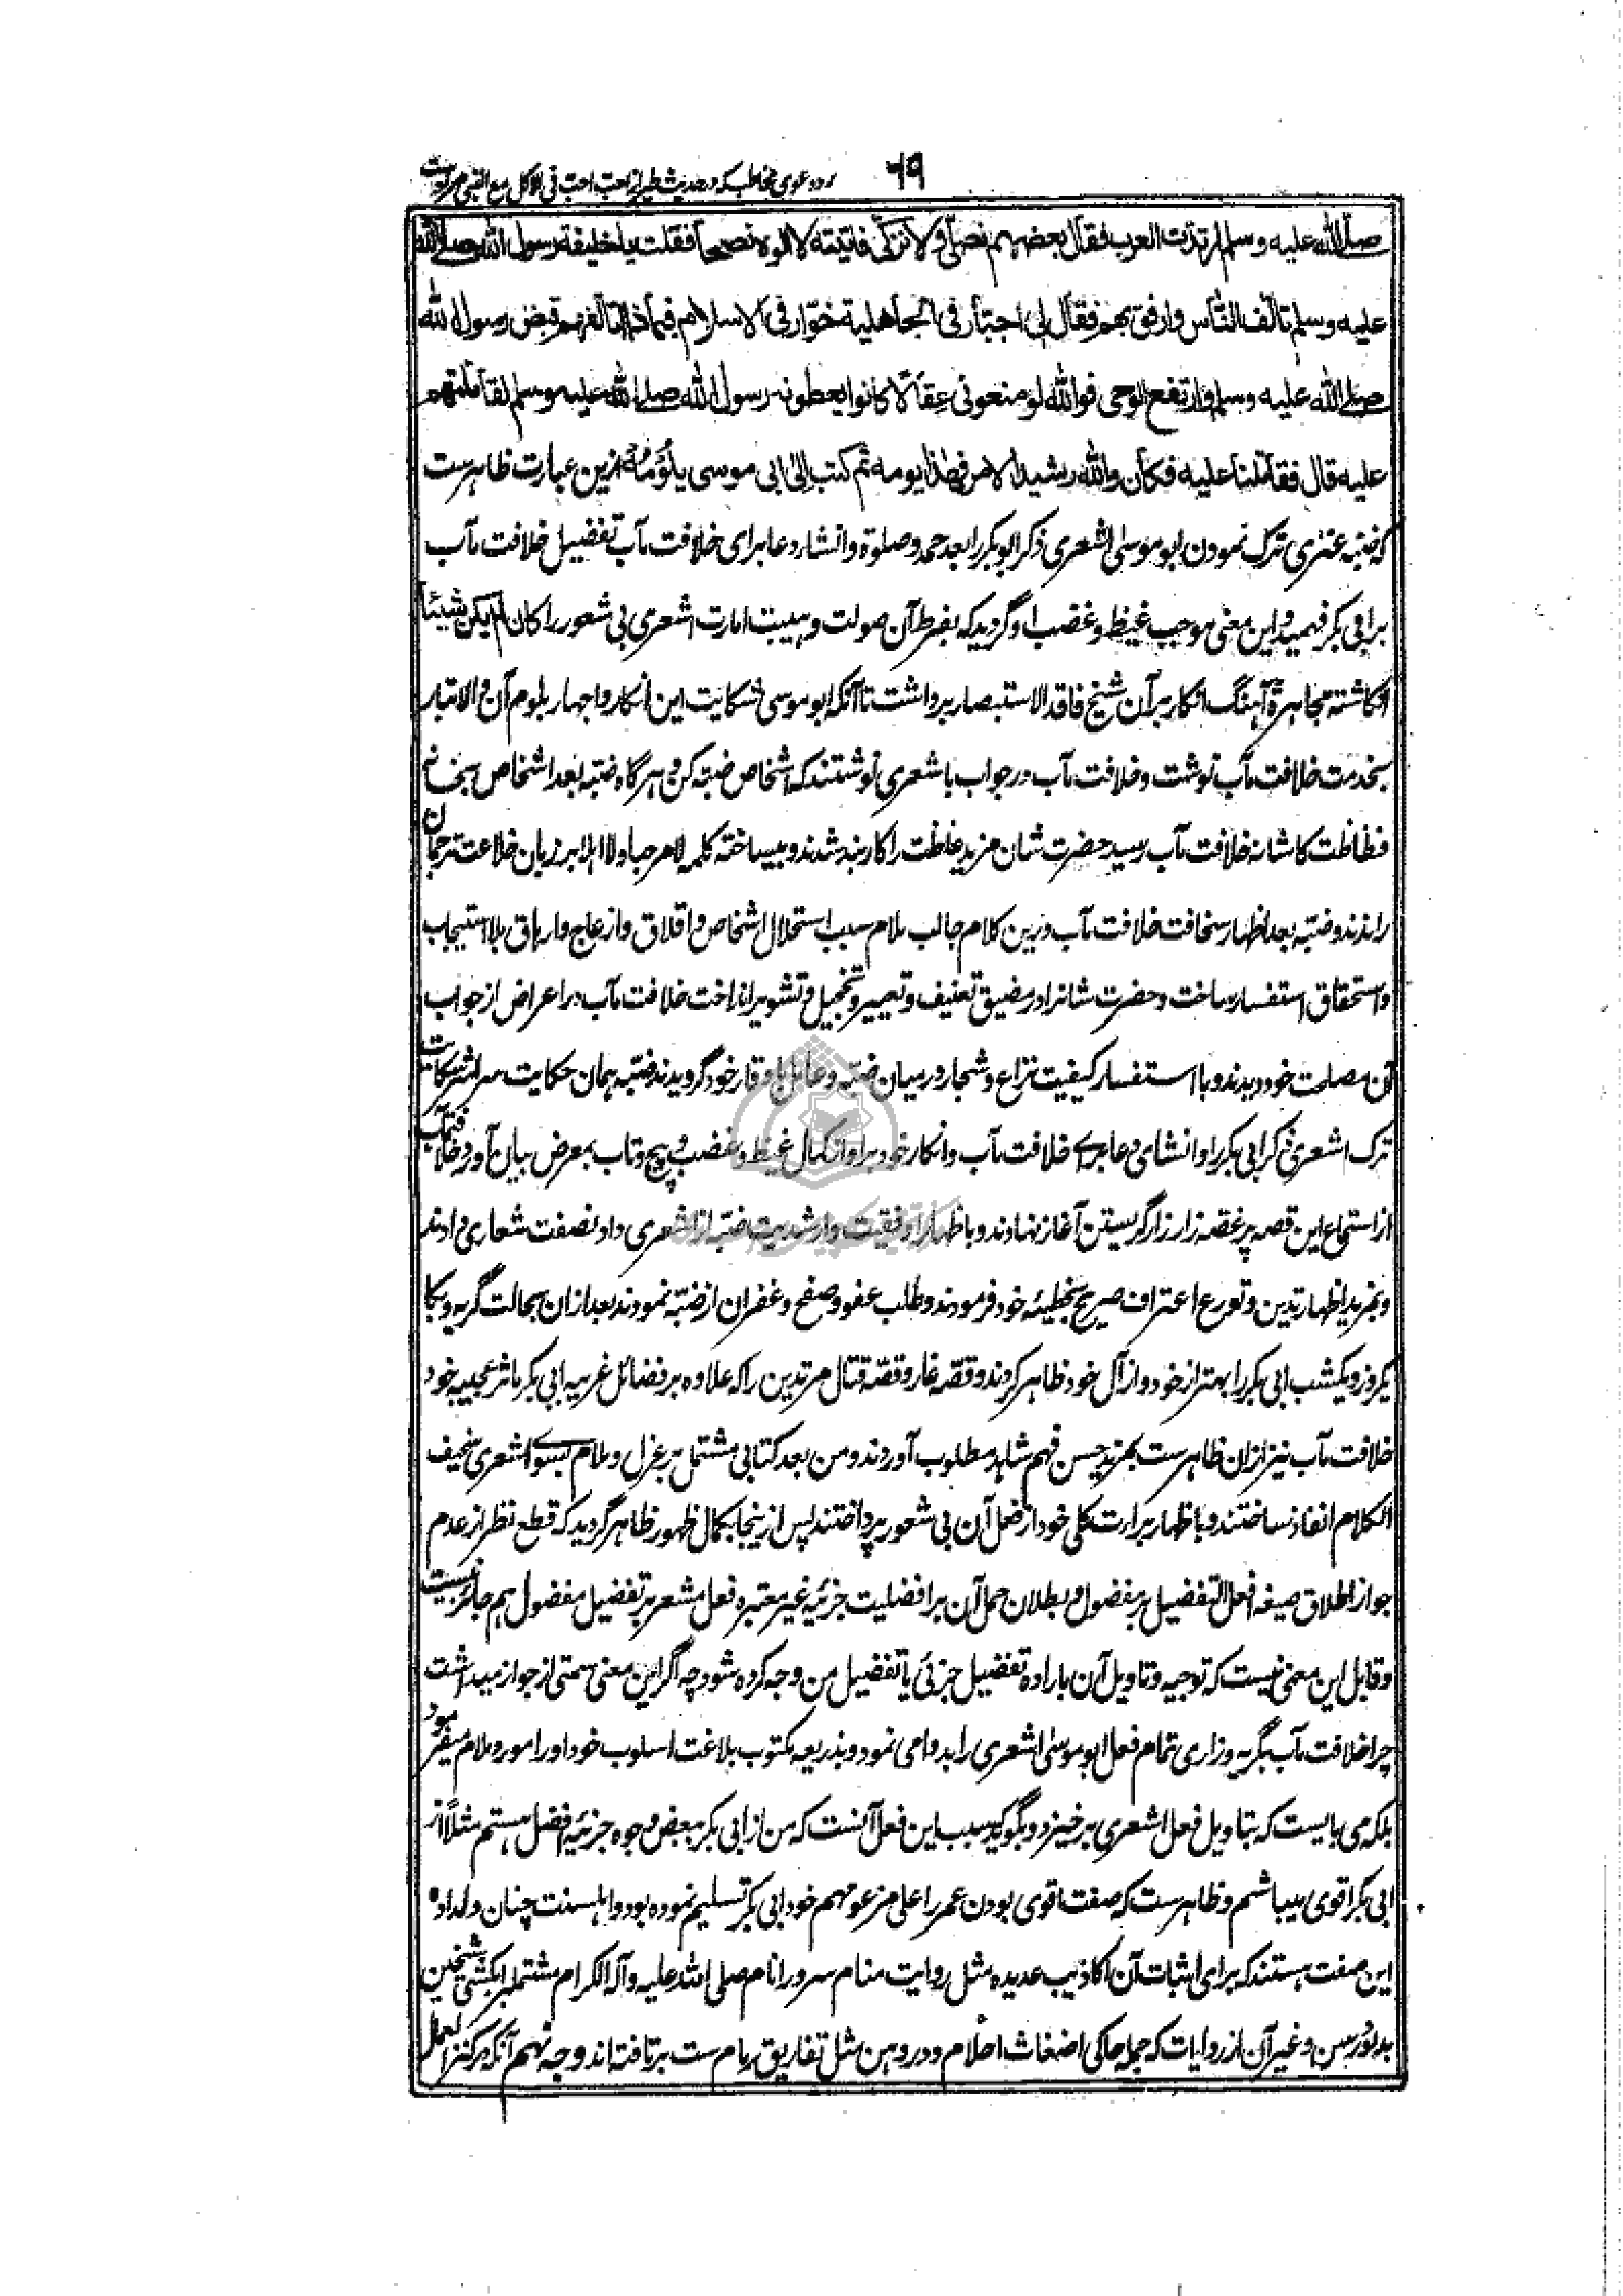 رد دعوی مخاطب که در حدیث طیر از احب احب فی الاکل مع النبی مرادست
۶۹
صلی الله علیه وسلم ارتدت العرب فقال بعضهم نصلی ولا نزکی فاتیته لا الوه نصحا فقلت یا خلیفة رسول الله صلی الله
علیه وسلم تالف الناس وارفق بهم فقال لی اجبار فی الجاهلیة خوار فی الاسلام فبماذا اتالفهم قبض رسول الله
صلی الله علیه وسلم وارتفع الوحی فوالله لو منعونی عقالا کانوا یعطونه رسول الله صلی الله علیه وسلم لقاتلتهم
علیه قال فقاتلنا علیه فکان والله رشید الامر فهذا یومه ثم کتب الی ابی موسی یلومه ازین عبارت ظاهرست
که ضبه عنزی ترک نمودن ابو موسی اشعری ذکر ابو بکر را بعد حمد و صلوة و انشاء دعا برای خلافت مآب تفضیل خلافت مآب
بر ابی بکر فهمید و این معنی موجب غیظ و غضب او گردید که بفرط آن صولت و هیبت امارت اشعری بی شعور را کان لم یکن شیئا
انگاشته تجاهرة آهنگ انکار بر آن شیخ فاقد الاستبصار برداشت تا آنکه ابو موسی شکایت این انکار و اجهار بلوم آن والاتبار
بخدمت خلافت مآب نوشت و خلافت مآب در جواب باشعری نوشتند که اشخاص ضبه کن و هرگاه ضبه بعد اشخاص بخانه
فظاظت کاشانه خلافت مآب رسید حضرت شان مزید غلظت را کاربند شدند و بیساخته کلمه لا مرحبا ولا اهلا بر زبان خلاعت ترجمان
راندند و ضبه بعد اظهار سخافت خلافت مآب درین کلام جالب ملام سبب استحلال اشخاص و اقلاق و ازعاج و ارهاق بلا استیجاب
و استحقاق استفسار ساخت و حضرت شانرا در مضیق تعنیف و تعییر و تخجیل و تشویر انداخت خلافت مآب در اعراض از جواب
آن مصلحت خود دیدند و با استفسار کیفیت نزاع و شجار درمیان ضبه و عامل با وقار خود گرویدند ضبه همان حکایت سراسر شکایت
ترک اشعری ذکر ابی بکر را و انشای دعا برای خلافت مآب و انکار خود بر او از کمال غیظ و غضب و پیچ و تاب بمعرض بیان آورد خلافت مآب
از استماع این قصه پر غصه زار زار گریستن آغاز نهادند و با ظهار اوفقیت و ارشدیت ضبه از اشعری داد نصفت شعاری دادند
و بمزید اظهار تدین و تورع اعتراف صریح بخطیئه خود فرمودند و طلب عفو و صفح و غفران از ضبه نمودند بعد ازان بحالت گریه و بکا
یکروز و یکشب ابی بکر را بهتر از خود و از آل خود ظاهر کردند و قصه غار و قصه قتال مرتدین را که علاوه بر فضائل غریبه ابی بکر مآثر عجیبه خود
خلافت مآب نیز ازان ظاهرست بمزید حسن فهم شاهد مطلوب آوردند و من بعد کتابی مشتمل بر عزل و ملام بسوی اشعری سخیف
الکلام انفاذ ساختند و با ظهار براءت کلی خود از فعل آن بی شعور پرداختند پس از ینجا بکمال ظهور ظاهر گردید که قطع نظر از عدم
جواز اطلاق صیغه افعل التفضیل بر مفضول و بطلان حمل آن بر افضلیت جزئیه غیر معتبره فعل مشعر بر تفضیل مفضول هم جائز نیست
و قابل این معنی نیست که توجیه و تاویل آن باراده تفضیل جزئی یا تفضیل من وجه کرده شود چه اگر این معنی سمتی از جواز میداشت
چرا خلافت مآب بگریه و زاری تمام فعل ابو موسی اشعری را بد وامی نمود و بذریعه مکتوب بلاغت اسلوب خود او را مورد ملام میفرمود
بلکه می بایست که بتاویل فعل اشعری برخیزد و بگوید سبب این فعل آنست که من از ابی بکر ببعض وجوه جزئیه افضل هستم مثلاً از
ابی بکر اقوی میباشم و ظاهرست که صفت اقوی بودن عمر را علی مزعومهم خود ابی بکر تسلیم نموده بود و اهلسنت چنان دلداده
این صفت هستند که برای اثبات آن اکاذیب عدیده مثل روایت منام سرور انام صلی الله علیه وآله الکرام مشتمل بر آبکشی شیخین
بدلو رسن و غیر آن از روایات که جمله حاکی اضغاث احلام و در وهن مثل تفاریق رمام ست برتافته اند وجه نهم آنکه در کنز العمال